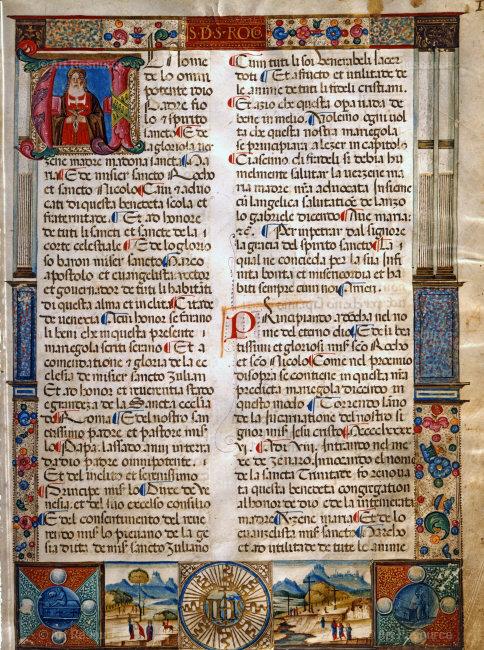 S·D·S·ROC
Al nome
de lo omni
potente idio
Padre fio
& spirito
sancto E de
la gloriosa ver
zene madre madona sancta Ma
ria E de misier sancto Rocho
et sancto Nicolo Cani & advo
cati di questa beneta scola et
fraternitate Et ad honore
de tuti li sancti et sancte de la
corte celestiale E de lo glorio
so baron miser sancto Marco
apostolo et evangelista rector
et governador de tuti li habitati
di questa alma et inclita Citate
de venexia Cum honor se farano
li beni che in questa presente
mariegola scriti serano Et a
comendatione & gloria de la ec
clesia de misier sancto Zulian
Et ad honor et reverentia stado
& grandeza de la Sancta ecclesia
de Roma Et del nostro san
ctissimo padre et pastore miss
lo Papa lassado anui in terra
da dio padre omnipotente
Et del inclito et serenissimo
Principe miss lo Duxe de Ve
nesia et del suo excelso consilio
E del consentimento del reve
rendo miss lo piovano de la gie
sia dita de miss sancto Zuliano
Cum tuti li soi venerabeli sacer
doti Et aficto et utilitade de
le anime de tuti li fideli cristiani
Et azio che questa opa vada de
bene in melio Volemo ogni vol
ta che questa nostra mariegola
se principiara a lezer in capitolo
Ciascuno di fratelli si debia hu
milmente salutar la verzene ma
ria madre nra advocata Insieme
cu langelica salutatioe de lanzo
lo gabriele dicendo Ave maria
Per impetrar dal signore
la gracia del spirito sancto La
qual ne conceda per la sua Infi
nita bonta et misericordia et ha
biti sempre cum noi Amen
Principiando adecha nel no
me del eterno dio Et di bea
tissimi et gloriosi miss sco Rocho
et sco Nicolo Come nel prohemio
di sopra se contiene in questa nra
predicta mariegola dicendo in
questo modo Correndo lano
de la Incarnatione del nostro si
gnor miss Jesu cristo
Intrando nel me
xe de zenaro Invocando el nome
de la sancta Trinitade fo renova
ta questa beneta congregation
al honor de dio & de la intemerata
madre Verzene maria Et de lo
evangelista miss sancto Marcho
et ad utilitade de tute le anime